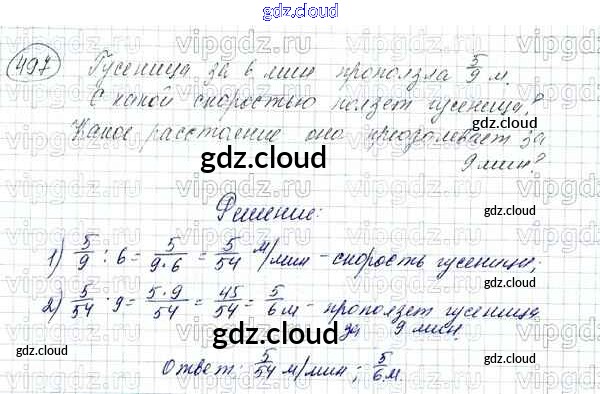 gdz.cloud
497 Гусеница за 6 мин проползла 5/9 м.
С какой скоростью ползет гусеница?
Какое расстояние она преодолевает за
9 мин?
gdz.cloud
gdz.cloud
Решение:
gdz.cloud
1) 5/9 : 6 = 5/(9·6) = 5/54 м/мин - скорость гусеницы;
2) 5/54 · 9 = (5·9)/54 = 45/54 = 5/6 м - проползет гусеница
за 9 мин.
gdz.cloud
gdz.cloud
gdz.cloud
Ответ: 5/54 м/мин; 5/6 м.